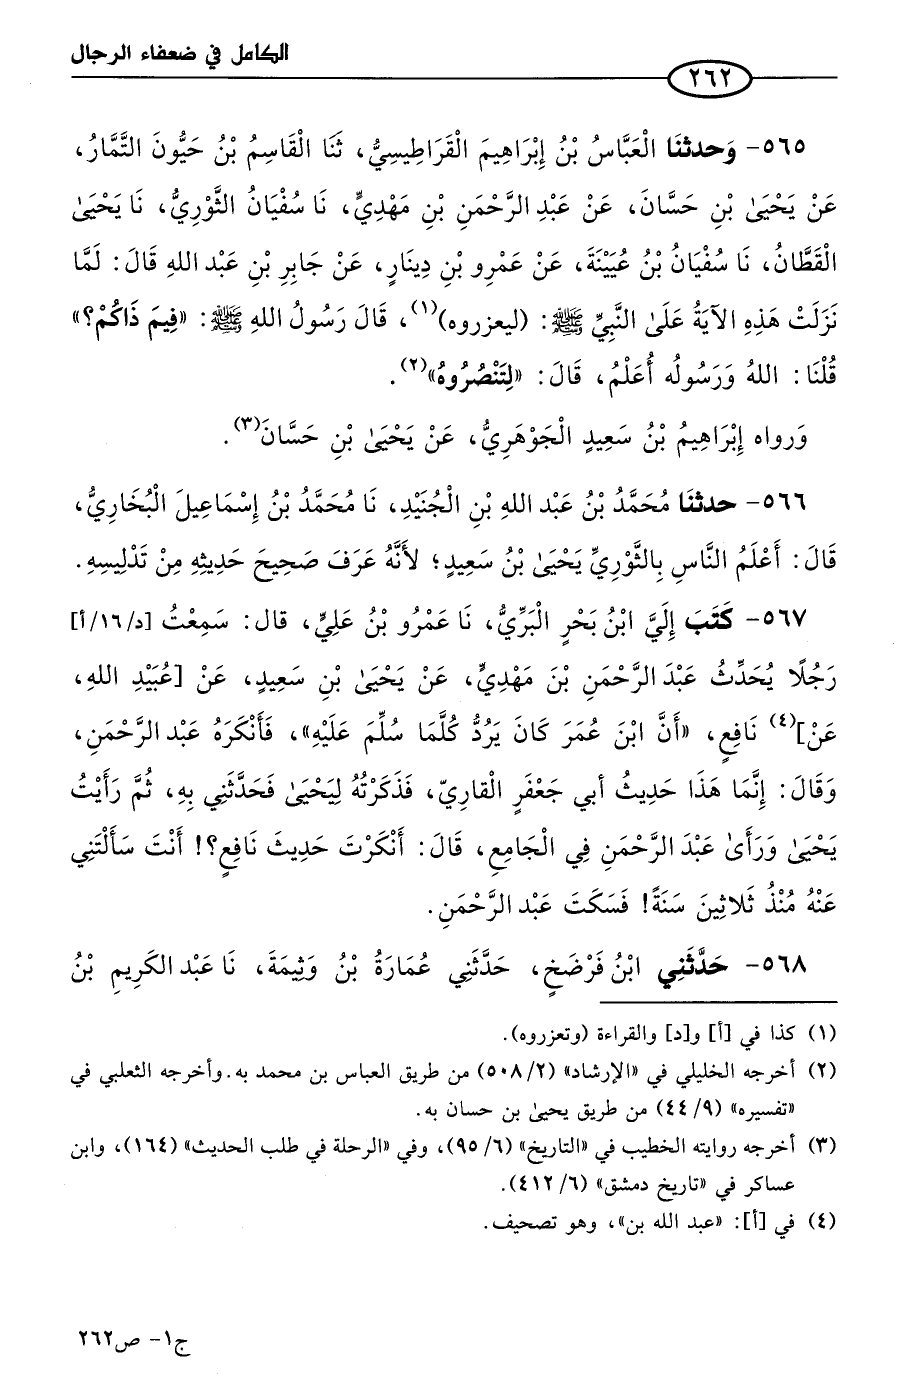 الكامل في ضعفاء الرجال
٢٦٢
٥٦٥- وَحدثنَا الْعَبَّاسُ بْنُ إِبْرَاهِيمَ الْقَرَاطِيسِيُّ، ثَنَا الْقَاسِمُ بْنُ حَيُّونَ التَّمَّارُ،
عَنْ يَحْيَىٰ بْنِ حَسَّانَ، عَنْ عَبْدِ الرَّحْمَنِ بْنِ مَهْدِيٍّ، نَا سُفْيَانُ الثَّوْرِيُّ، نَا يَحْيَىٰ
الْقَطَّانُ، نَا سُفْيَانُ بْنُ عُيَيْنَةَ، عَنْ عَمْرِو بْنِ دِينَارٍ، عَنْ جَابِرِ بْنِ عَبْدِ اللهِ قَالَ: لَمَّا
نَزَلَتْ هَذِهِ الآيَةُ عَلَىٰ النَّبِيِّ ﷺ: (ليعزروه)(١)، قَالَ رَسُولُ اللهِ ﷺ: «فِيمَ ذَاكُمْ؟»
قُلْنَا: اللهُ وَرَسُولُه أَعْلَمُ، قَالَ: «لِتَنْصُرُوهُ»(٢).
وَرواه إِبْرَاهِيمُ بْنُ سَعِيدٍ الْجَوْهَرِيُّ، عَنْ يَحْيَىٰ بْنِ حَسَّانَ(٣).
٥٦٦- حدثنَا مُحَمَّدُ بْنُ عَبْدِ اللهِ بْنِ الْجُنَيْدِ، نَا مُحَمَّدُ بْنُ إِسْمَاعِيلَ الْبُخَارِيُّ،
قَالَ: أَعْلَمُ النَّاسِ بِالثَّوْرِيِّ يَحْيَىٰ بْنُ سَعِيدٍ؛ لأَنَّهُ عَرَفَ صَحِيحَ حَدِيثِهِ مِنْ تَدْلِيسِهِ.
٥٦٧- كَتَبَ إِلَيَّ ابْنُ بَحْرٍ الْبَرِّيُّ، نَا عَمْرُو بْنُ عَلِيٍّ، قال: سَمِعْتُ [د/١٦/أ]
رَجُلًا يُحَدِّثُ عَبْدَ الرَّحْمَنِ بْنَ مَهْدِيٍّ، عَنْ يَحْيَىٰ بْنِ سَعِيدٍ، عَنْ [عُبَيْدِ اللهِ،
عَنْ](٤) نَافِعٍ، «أَنَّ ابْنَ عُمَرَ كَانَ يَرُدُّ كُلَّمَا سُلِّمَ عَلَيْهِ»، فَأَنْكَرَهُ عَبْد الرَّحْمَنِ،
وَقَالَ: إِنَّمَا هَذَا حَدِيثُ أبي جَعْفَرٍ الْقاريّ، فَذَكَرْتُهُ لِيَحْيَىٰ فَحَدَّثَنِي بِهِ، ثُمَّ رَأَيْتُ
يَحْيَىٰ وَرَأَىٰ عَبْدَ الرَّحْمَنِ فِي الْجَامِعِ، قَالَ: أَنْكَرْتَ حَدِيثَ نَافِعٍ؟! أَنْتَ سَأَلْتَنِي
عَنْهُ مُنْذُ ثَلاثِينَ سَنَةً! فَسَكَتَ عَبْد الرَّحْمَنِ.
٥٦٨- حَدَّثَنِي ابْنُ فَرْضَخٍ، حَدَّثَنِي عُمَارَةُ بْنُ وَثِيمَةَ، نَا عَبْد الكَرِيمِ بْنُ
(١) كذا في [أ] و[د] والقراءة (وتعزروه).
(٢) أخرجه الخليلي في «الإرشاد» (٥٠٨/٢) من طريق العباس بن محمد به. وأخرجه الثعلبي في
«تفسيره» (٤٤/٩) من طريق يحيىٰ بن حسان به.
(٣) أخرجه روايته الخطيب في «التاريخ» (٩٥/٦)، وفي «الرحلة في طلب الحديث» (١٦٤)، وابن
عساكر في «تاريخ دمشق» (٤١٢/٦).
(٤) في [أ]: «عبد الله بن»، وهو تصحيف.
ج١- ص٢٦٢